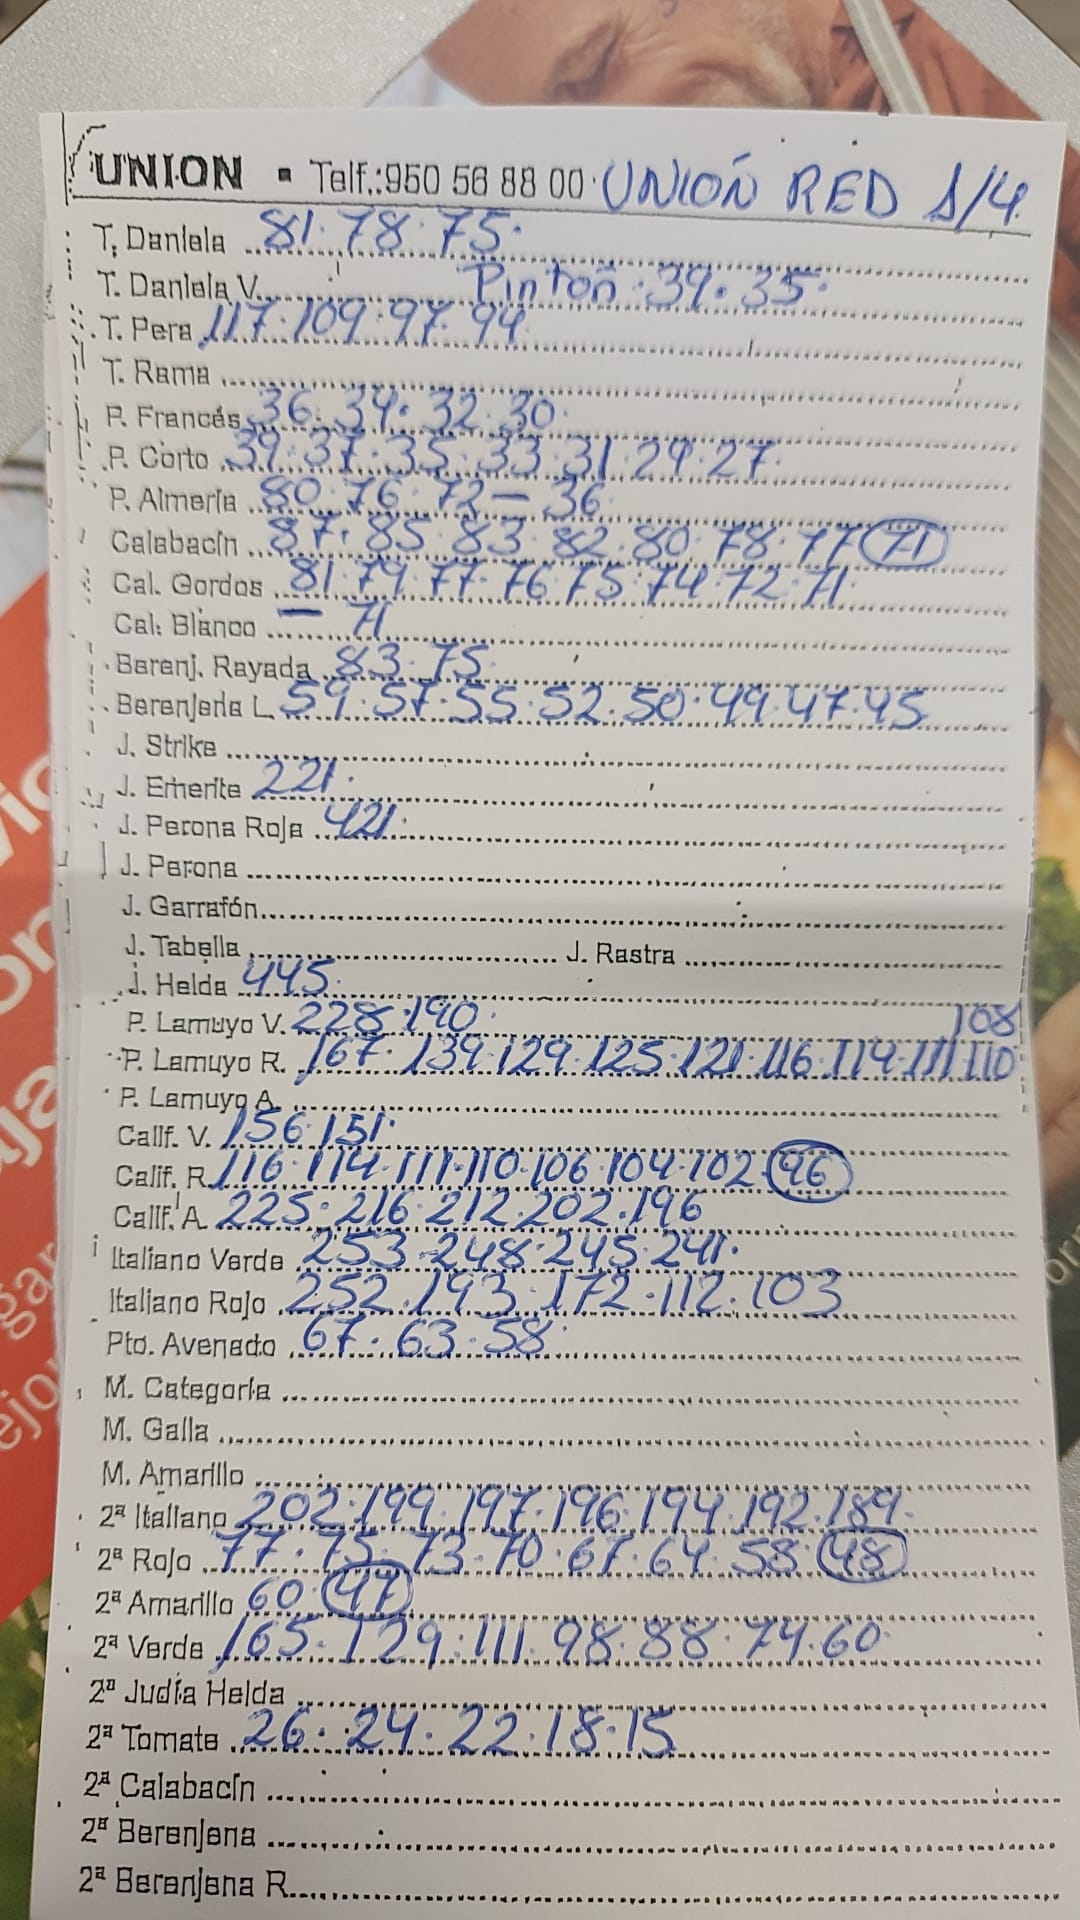 UNION ▪ Telf.:950 56 88 00 · UNIÓN RED 1/4.
T. Daniela 81·78·75·
T. Daniela V. Pintón·39·35·
T. Pera 117·109·97·94
T. Rama
P. Francés 36·34·32·30·
P. Corto 39·37·35·33·31·29·27·
P. Almería 80·76·72–36
Calabacín 87·85·83·82·80·78·77 71
Cal. Gordos 81·79·77·76·75·74·72·71·
Cal. Blanco – 71
Berenj. Rayada 83·75
Berenjena L. 59·57·55·52·50·49·47·45
J. Strike
J. Emerite 221·
J. Perona Roja 421·
J. Perona
J. Garrafón
J. Tabella J. Rastra
J. Helda 445
P. Lamuyo V. 228·190· 108
P. Lamuyo R. 167·139·129·125·121·116·114·111·110
P. Lamuyo A.
Calif. V. 156·151·
Calif. R. 116·114·111·110·106·104·102 96
Calif. A. 225·216·212·202·196
Italiano Verde 253·248·245·241·
Italiano Rojo 252·193·172·112·103
Pto. Avenado 67·63·58·
M. Categoría
M. Galia
M. Amarillo
2ª Italiano 202·199·197·196·194·192·189·
2ª Rojo 77·75·73·70·67·64·58· 48
2ª Amarillo 60· 47
2ª Verde 165·129·111·98·88·74·60·
2ª Judía Helda
2ª Tomate 26·24·22·18·15
2ª Calabacín
2ª Berenjena
2ª Berenjena R.